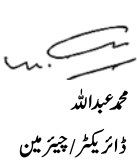 محمد عبداللہ
ڈائریکٹر/چیئرمین